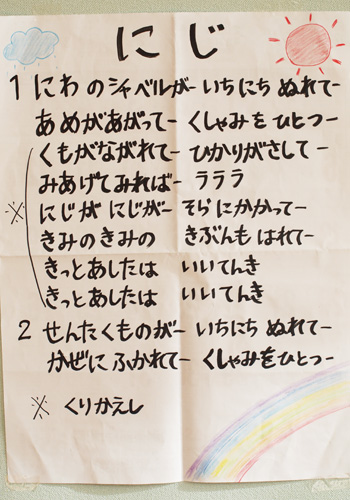 にじ
1 にわのシャベルがー いちにち ぬれてー
あめがあがってー くしゃみをひとつー
くもがながれてー ひかりがさしてー
みあげてみればー ラララ
※ にじが にじがー そらにかかってー
きみのきみの きぶんもはれてー
きっとあしたは いいてんき
きっとあしたは いいてんき
2 せんたくものがー いちにち ぬれてー
かぜにふかれてー くしゃみをひとつー
※ くりかえし